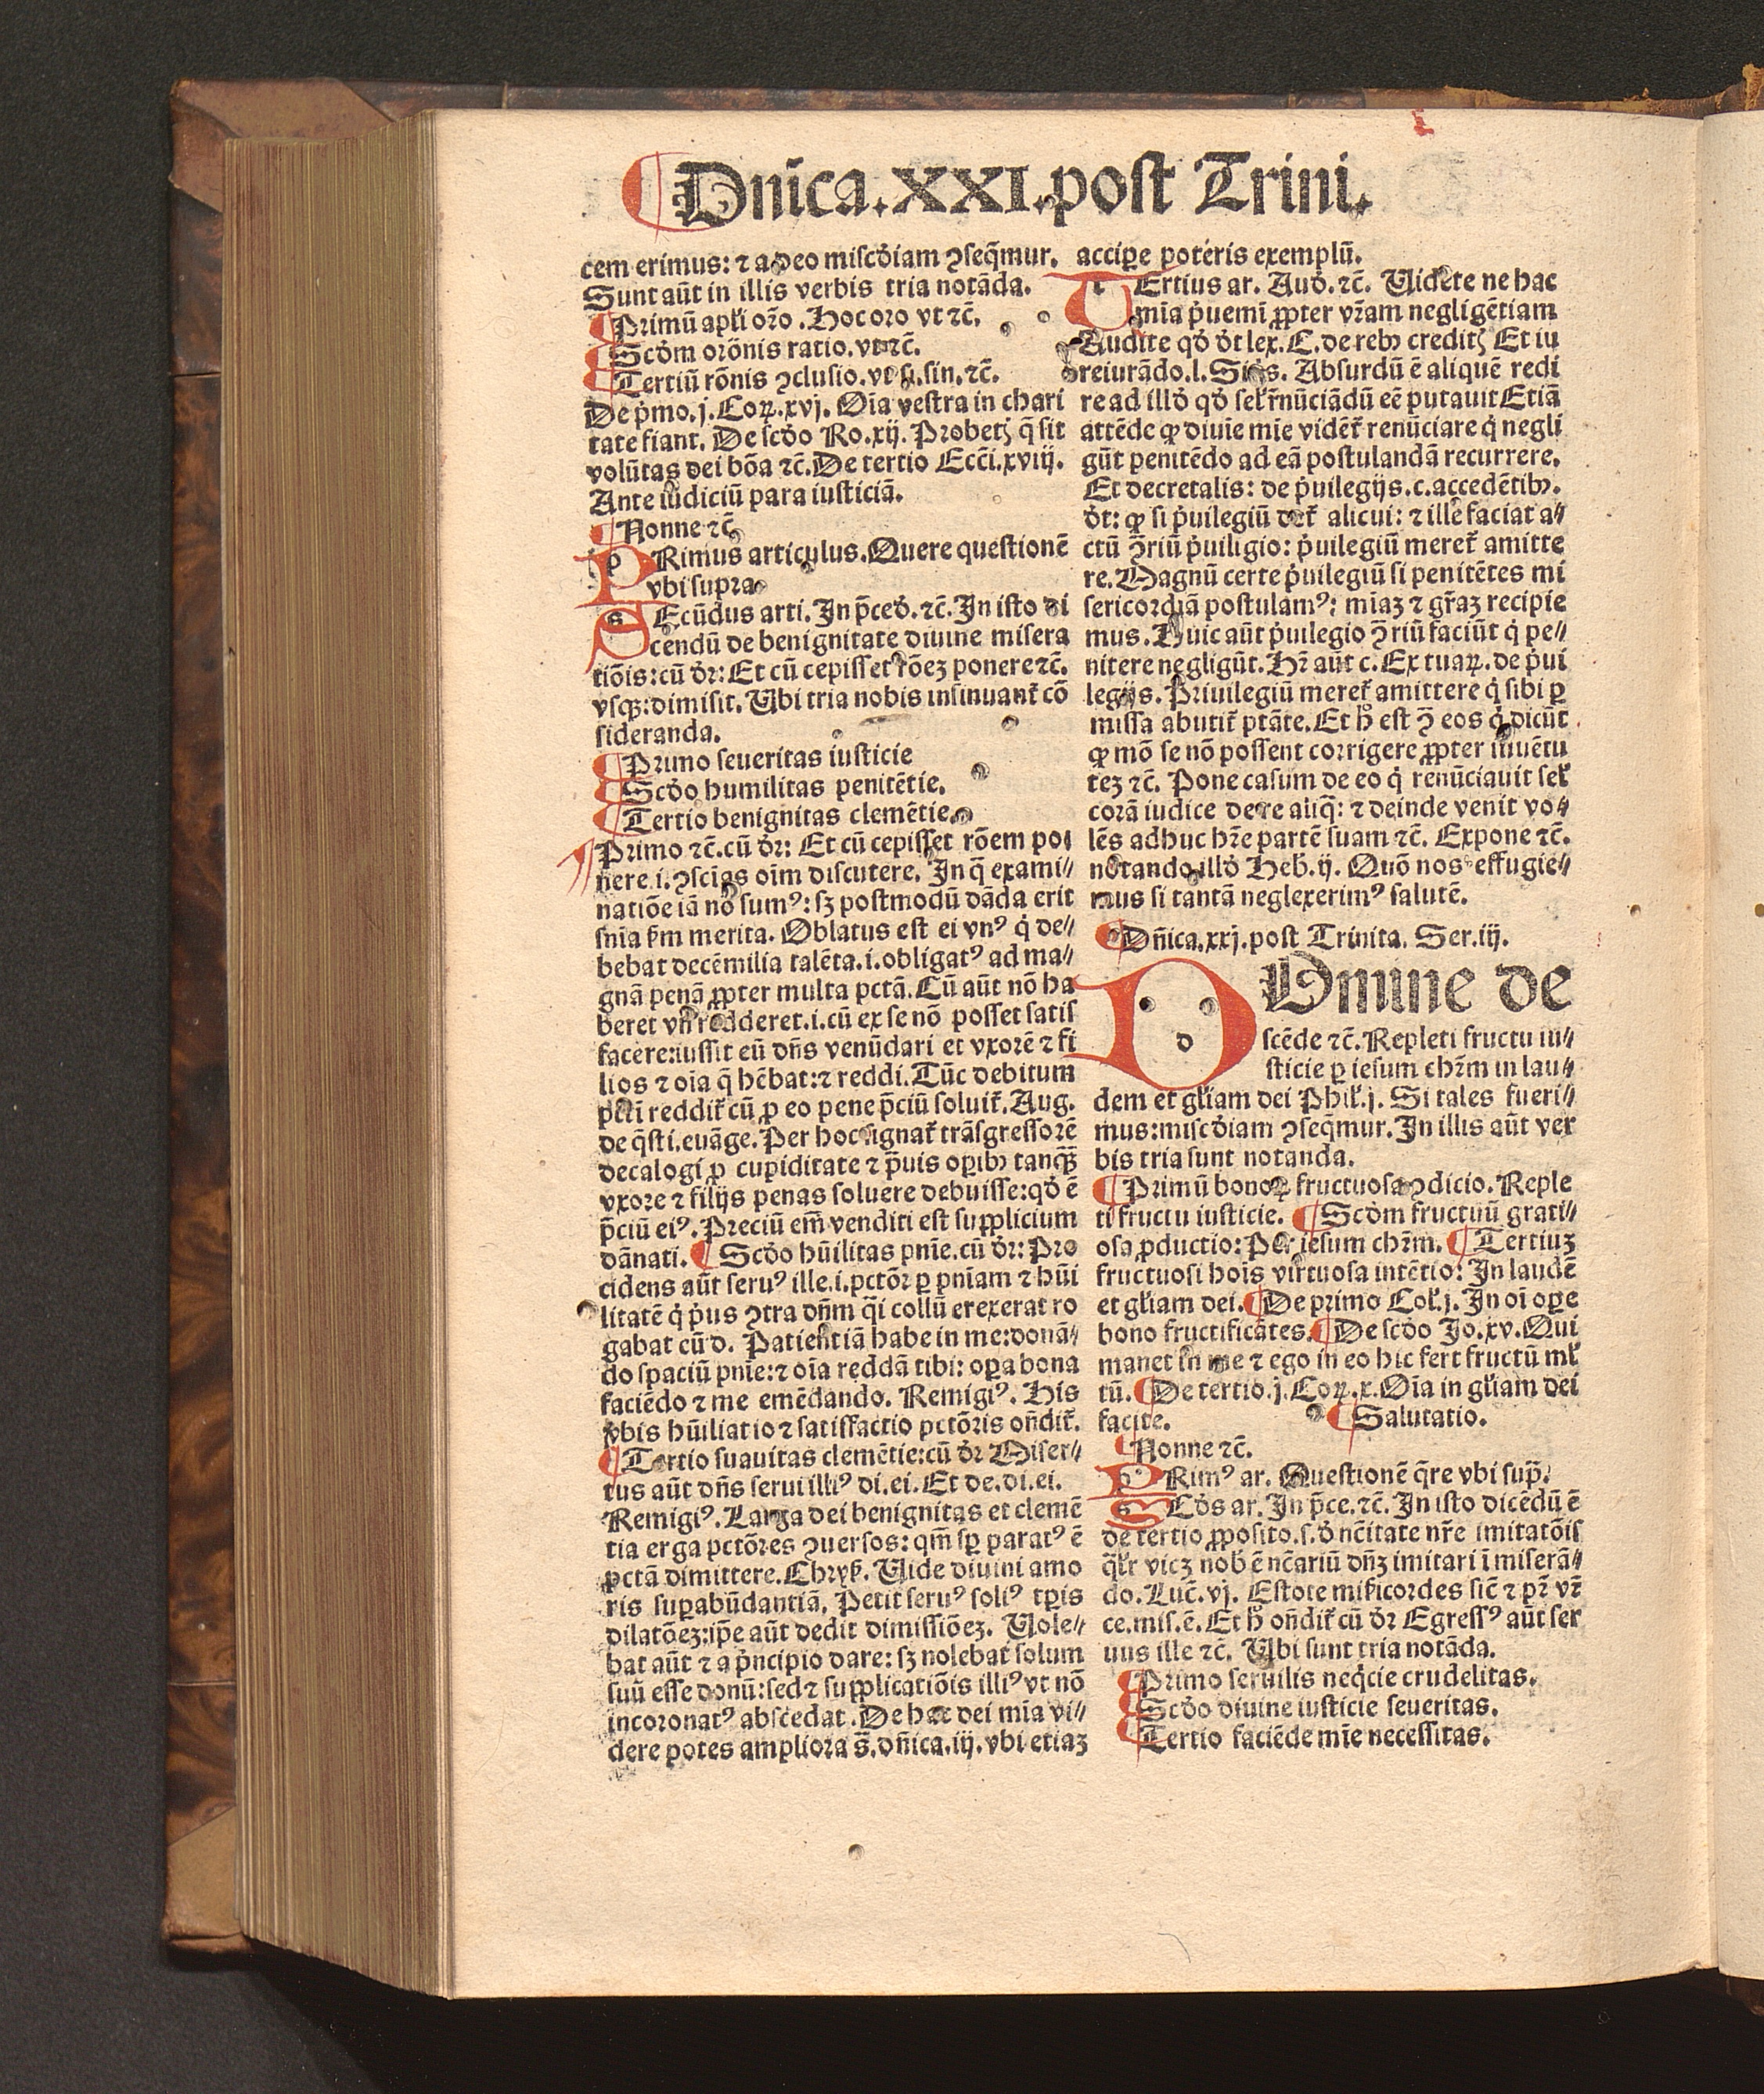 ¶ Dnĩca.XXI.post Trini.
cem erimus: ⁊ a deo miscd̓iam ꝯseq̃mur.
Sunt aũt in illis verbis tria notãda.
¶ Primũ apłi or̃o. Hoc oro vt ⁊c̃.
¶ Scd̓m orõnis ratio. vt ⁊c̃.
¶ Tertiũ rõnis ꝯclusio. vt si.sin.⁊c̃.
De p̓mo.j.Coꝝ.xvj. Oĩa vestra in chari
tate fiant. De scd̓o Ro.xij. Probetꝭ q̃ sit
volũtas dei bõa ⁊c̃. De tertio Ecc̃i.xviij.
Ante iudiciũ para iusticiã.
¶ Nonne ⁊c̃.
PRimus articulus. Quere questionẽ
vbi supra.
SEcũdus arti. In p̃ced̓.⁊c̃. In isto di
cendũ de benignitate diuine misera
tiõis: cũ d̓r: Et cũ cepisset rõez ponere ⁊c̃.
vsqꝫ: dimisit. Ubi tria nobis insinuant̃ cõ
sideranda.
¶ Primo seueritas iusticie
¶ Scd̓o humilitas penitẽtie.
¶ Tertio benignitas clemẽtie.
¶ Primo ⁊c̃. cũ d̓r: Et cũ cepisset rõem po⸗
nere.i.ꝯsciãs oĩm discutere. In q̃ exami⸗
natiõe iã nõ sumꝰ: sꝫ postmodũ dãda erit
snĩa ẜm merita. Oblatus est ei vnꝰ q̓ de⸗
bebat decẽ milia talẽta.i.obligatꝰ ad ma⸗
gnã penã ꝓpter multa pctã. Cũ aũt nõ ha
beret vñ redderet.i.cũ ex se nõ posset satis
facere: iussit eũ dñs venũdari et vxorẽ ⁊ fi
lios ⁊ oĩa q̃ hẽbat: ⁊ reddi. Tũc debitum
pctĩ reddit̃ cũ ꝓ eo pene p̃ciũ soluit̃. Aug.
de q̃sti.euãge. Per hoc signat̃ trãsgressorẽ
decalogi ꝓ cupiditate ⁊ p̃uis oꝑibꝰ tanqꝫ̃
vxore ⁊ filijs penas soluere debuisse: qd̓ ẽ
p̃ciũ eiꝰ. Preciũ em̃ venditi est supplicium
dãnati. ¶ Scd̓o hũilitas pnĩe. cũ d̓r: Pro
cidens aũt seruꝰ ille.i.pctõr ꝑ pnĩam ⁊ hũi
litatẽ q̓ p̓us ꝯtra dñm q̃i collũ erexerat ro
gabat eũ d. Patientiã habe in me: donã⸗
do spaciũ pnĩe: ⁊ oĩa reddã tibi: oꝑa bona
faciẽdo ⁊ me emẽdando. Remigiꝰ. His
ṽbis hũiliatio ⁊ satisfactio pctõris oñdit̃.
¶ Tertio suauitas clemẽtie: cũ d̓r Miser⸗
tus aũt dñs serui illiꝰ di.ei. Et de.di.ei.
Remigiꝰ. Larga dei benignitas et clemẽ
tia erga pctõres ꝯuersos: qm̃ sꝑ paratꝰ ẽ
pctã dimittere. Chryß. Uide diuini amo
ris suꝑabũdantiã. Petit seruꝰ soliꝰ tꝑis
dilatõez: ip̃e aũt dedit dimissiõez. Uole⸗
bat aũt ⁊ a p̓ncipio dare: sꝫ nolebat solum
suũ esse donũ: sed ⁊ supplicatiõis illiꝰ vt nõ
incoronatꝰ abscedat. De hac dei mĩa vi⸗
dere potes ampliora s̃.dñica.iij.vbi etiaz
accipe poteris exemplũ.
TErtius ar. Aud̓.⁊c̃. Uidete ne hac
mĩa p̓uemĩ ꝓpter vr̃am negligẽtiam
Audite qd̓ d̓t lex. C. de rebꝰ creditꝭ Et iu
reiurãdo.l. Absurdũ ẽ aliquẽ redi
re ad illd̓ qd̓ seł r̃nũciãdũ eẽ putauit Etiã
attẽde ꝙ diuĩe mĩe vidẽt̃ renũciare q̓ negli
gũt penitẽdo ad eã postulandã recurrere.
Et decretalis: de p̓uilegijs.c.accedẽtibꝰ.
d̓t: ꝙ si p̓uilegiũ det̃ alicui: ⁊ ille faciat a⸗
ctũ ꝯ̃riũ p̓uiligio: p̓uilegiũ meret̃ amitte
re. Magnũ certe p̓uilegiũ si penitẽtes mi
sericordiã postulamꝰ: mĩaz ⁊ gr̃az recipie
mus. Huic aũt p̓uilegio ꝯ̃riũ faciũt q̓ pe⸗
nitere negligũt. Hr̃ aũt c. Ex tuaꝝ. de p̓ui
legijs. Priuilegiũ meret̃ amittere q̓ sibi ꝑ
missa abutit̃ ptãte. Et h̓ est ꝯ̃ eos q̓ dicũt
ꝙ mõ se nõ possent corrigere ꝓpter iuuẽtu
tez ⁊c̃. Pone casum de eo q̓ renũciauit seł
corã iudice de re aliq̃: ⁊ deinde venit vo⸗
lẽs adhuc hr̃e partẽ suam ⁊c̃. Expone ⁊c̃.
notando illd̓ Heb̓.ij. Quõ nos effugie⸗
mus si tantã neglexerimꝰ salutẽ.
¶ Dñica.xxj.post Trinita. Ser.iij.
DOmine de
scẽde ⁊c̃. Repleti fructu iu⸗
sticie ꝑ iesum chr̃m in lau⸗
dem et gł̓iam dei Phił.j. Si tales fueri⸗
mus: miscd̓iam ꝯseq̃mur. In illis aũt ver
bis tria sunt notanda.
¶ Primũ bonoꝝ fructuosa ꝯdicio. Reple
ti fructu iusticie. ¶ Scd̓m fructuũ grati⸗
osa ꝓductio: Per iesum chr̃m. ¶ Tertiuz
fructuosi hoĩs virtuosa intẽtio: In laudẽ
et gł̓iam dei. ¶ De primo Coł.j. In oĩ oꝑe
bono fructificãtes. ¶ De scd̓o Jo.xv. Qui
manet in me ⁊ ego in eo hic fert fructũ mł
tũ. ¶ De tertio.j.Coꝝ.x. Oĩa in gł̓iam dei
facite. ¶ Salutatio.
¶ Nonne ⁊c̃.
PRimꝰ ar. Questionẽ q̃re vbi sup̃.
SEcd̓s ar. In p̃ce.⁊c̃. In isto dicẽdũ ẽ
de tertio ꝓposito.s.d̓ nc̃itate nr̃e imitatõis
q̃lr̃ vicꝫ nob̓ ẽ nc̃ariũ dñꝫ imitari ĩ miserã⸗
do. Luc̃.vj. Estote mif̃icordes sic̃ ⁊ pr̃ vr̃
ce.mis.ẽ. Et h̓ oñdit̃ cũ d̓r Egressꝰ aũt ser
uus ille ⁊c̃. Ubi sunt tria notãda.
¶ Primo seruilis neq̓cie crudelitas.
¶ Scd̓o diuine iusticie seueritas.
¶ Tertio faciẽde mĩe necessitas.